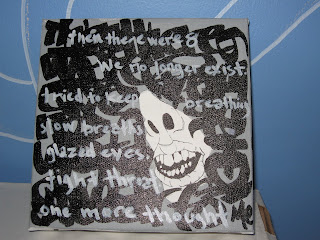 then there were 8
We no longer exist.
tried to keep breathing
slow breaths
glazed eyes.
tight throat.
one more thought